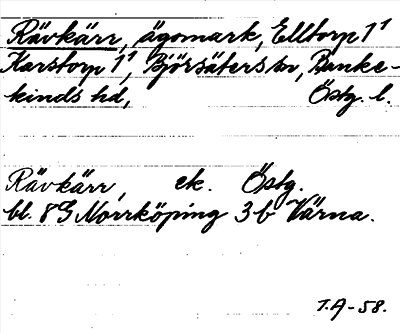 Rävkärr, ägomark, Elltorp 1¹
Karstorp 1¹, Björsäters sn, Banke-
kinds hd, Östg. l.
Rävkärr, ek. Östg.
bl. 8G Norrköping 3b Värna.
1.A-58.